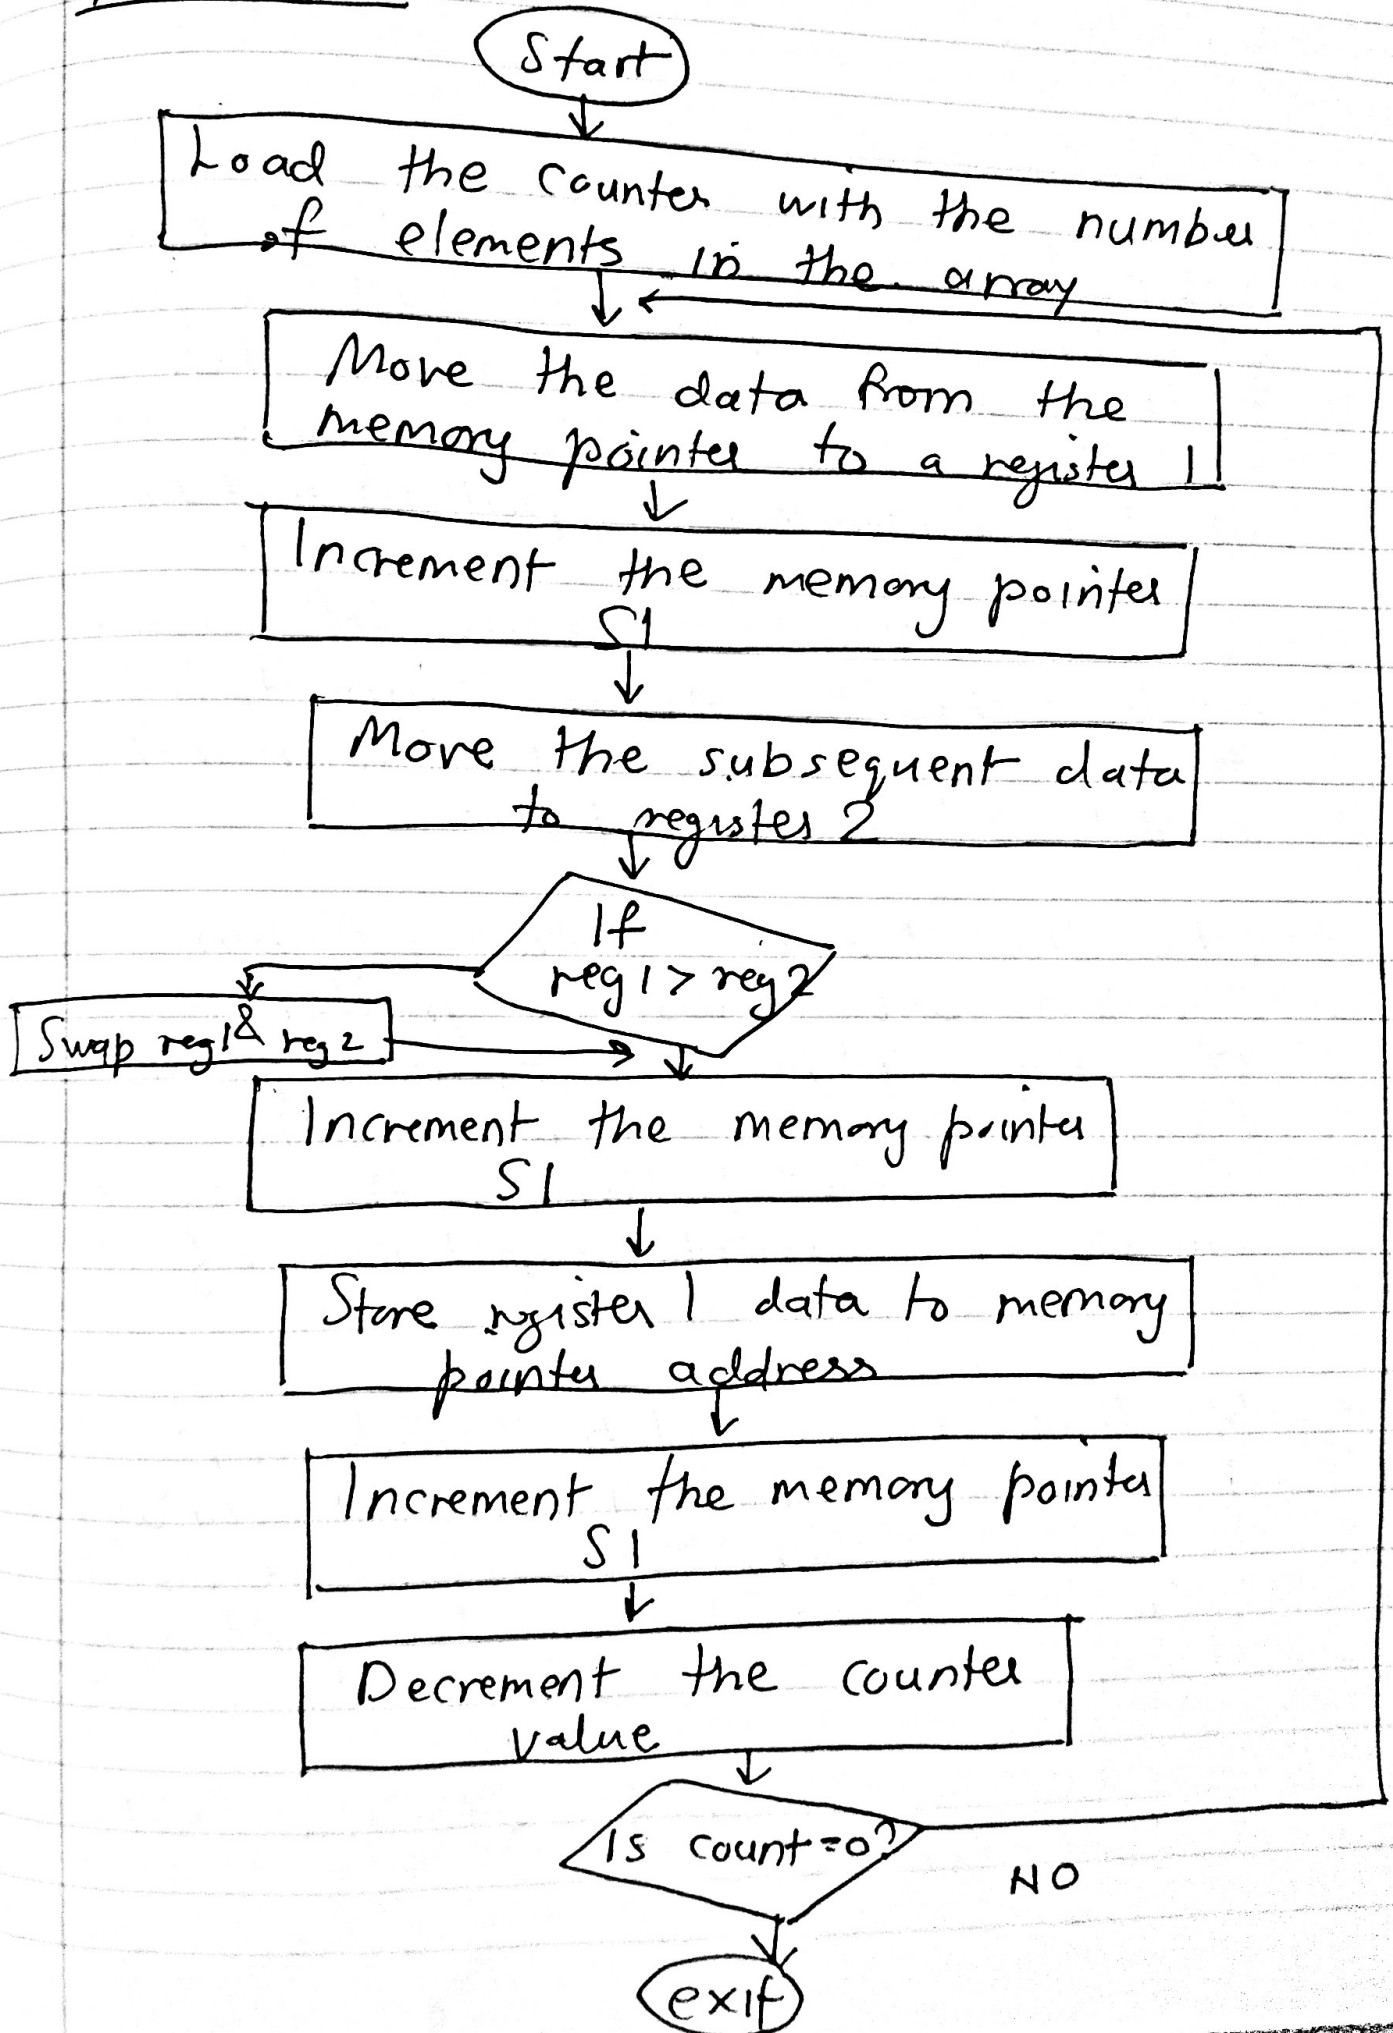 Start
Load the counter with the number
of elements in the array
Move the data from the
memory pointer to a register 1
Increment the memory pointer
S1
Move the subsequent data
to register 2
If
reg1 > reg2
Swap reg1 & reg2
Increment the memory pointer
S1
Store register 1 data to memory
pointer address
Increment the memory pointer
S1
Decrement the counter
value
Is count=0?
NO
exit